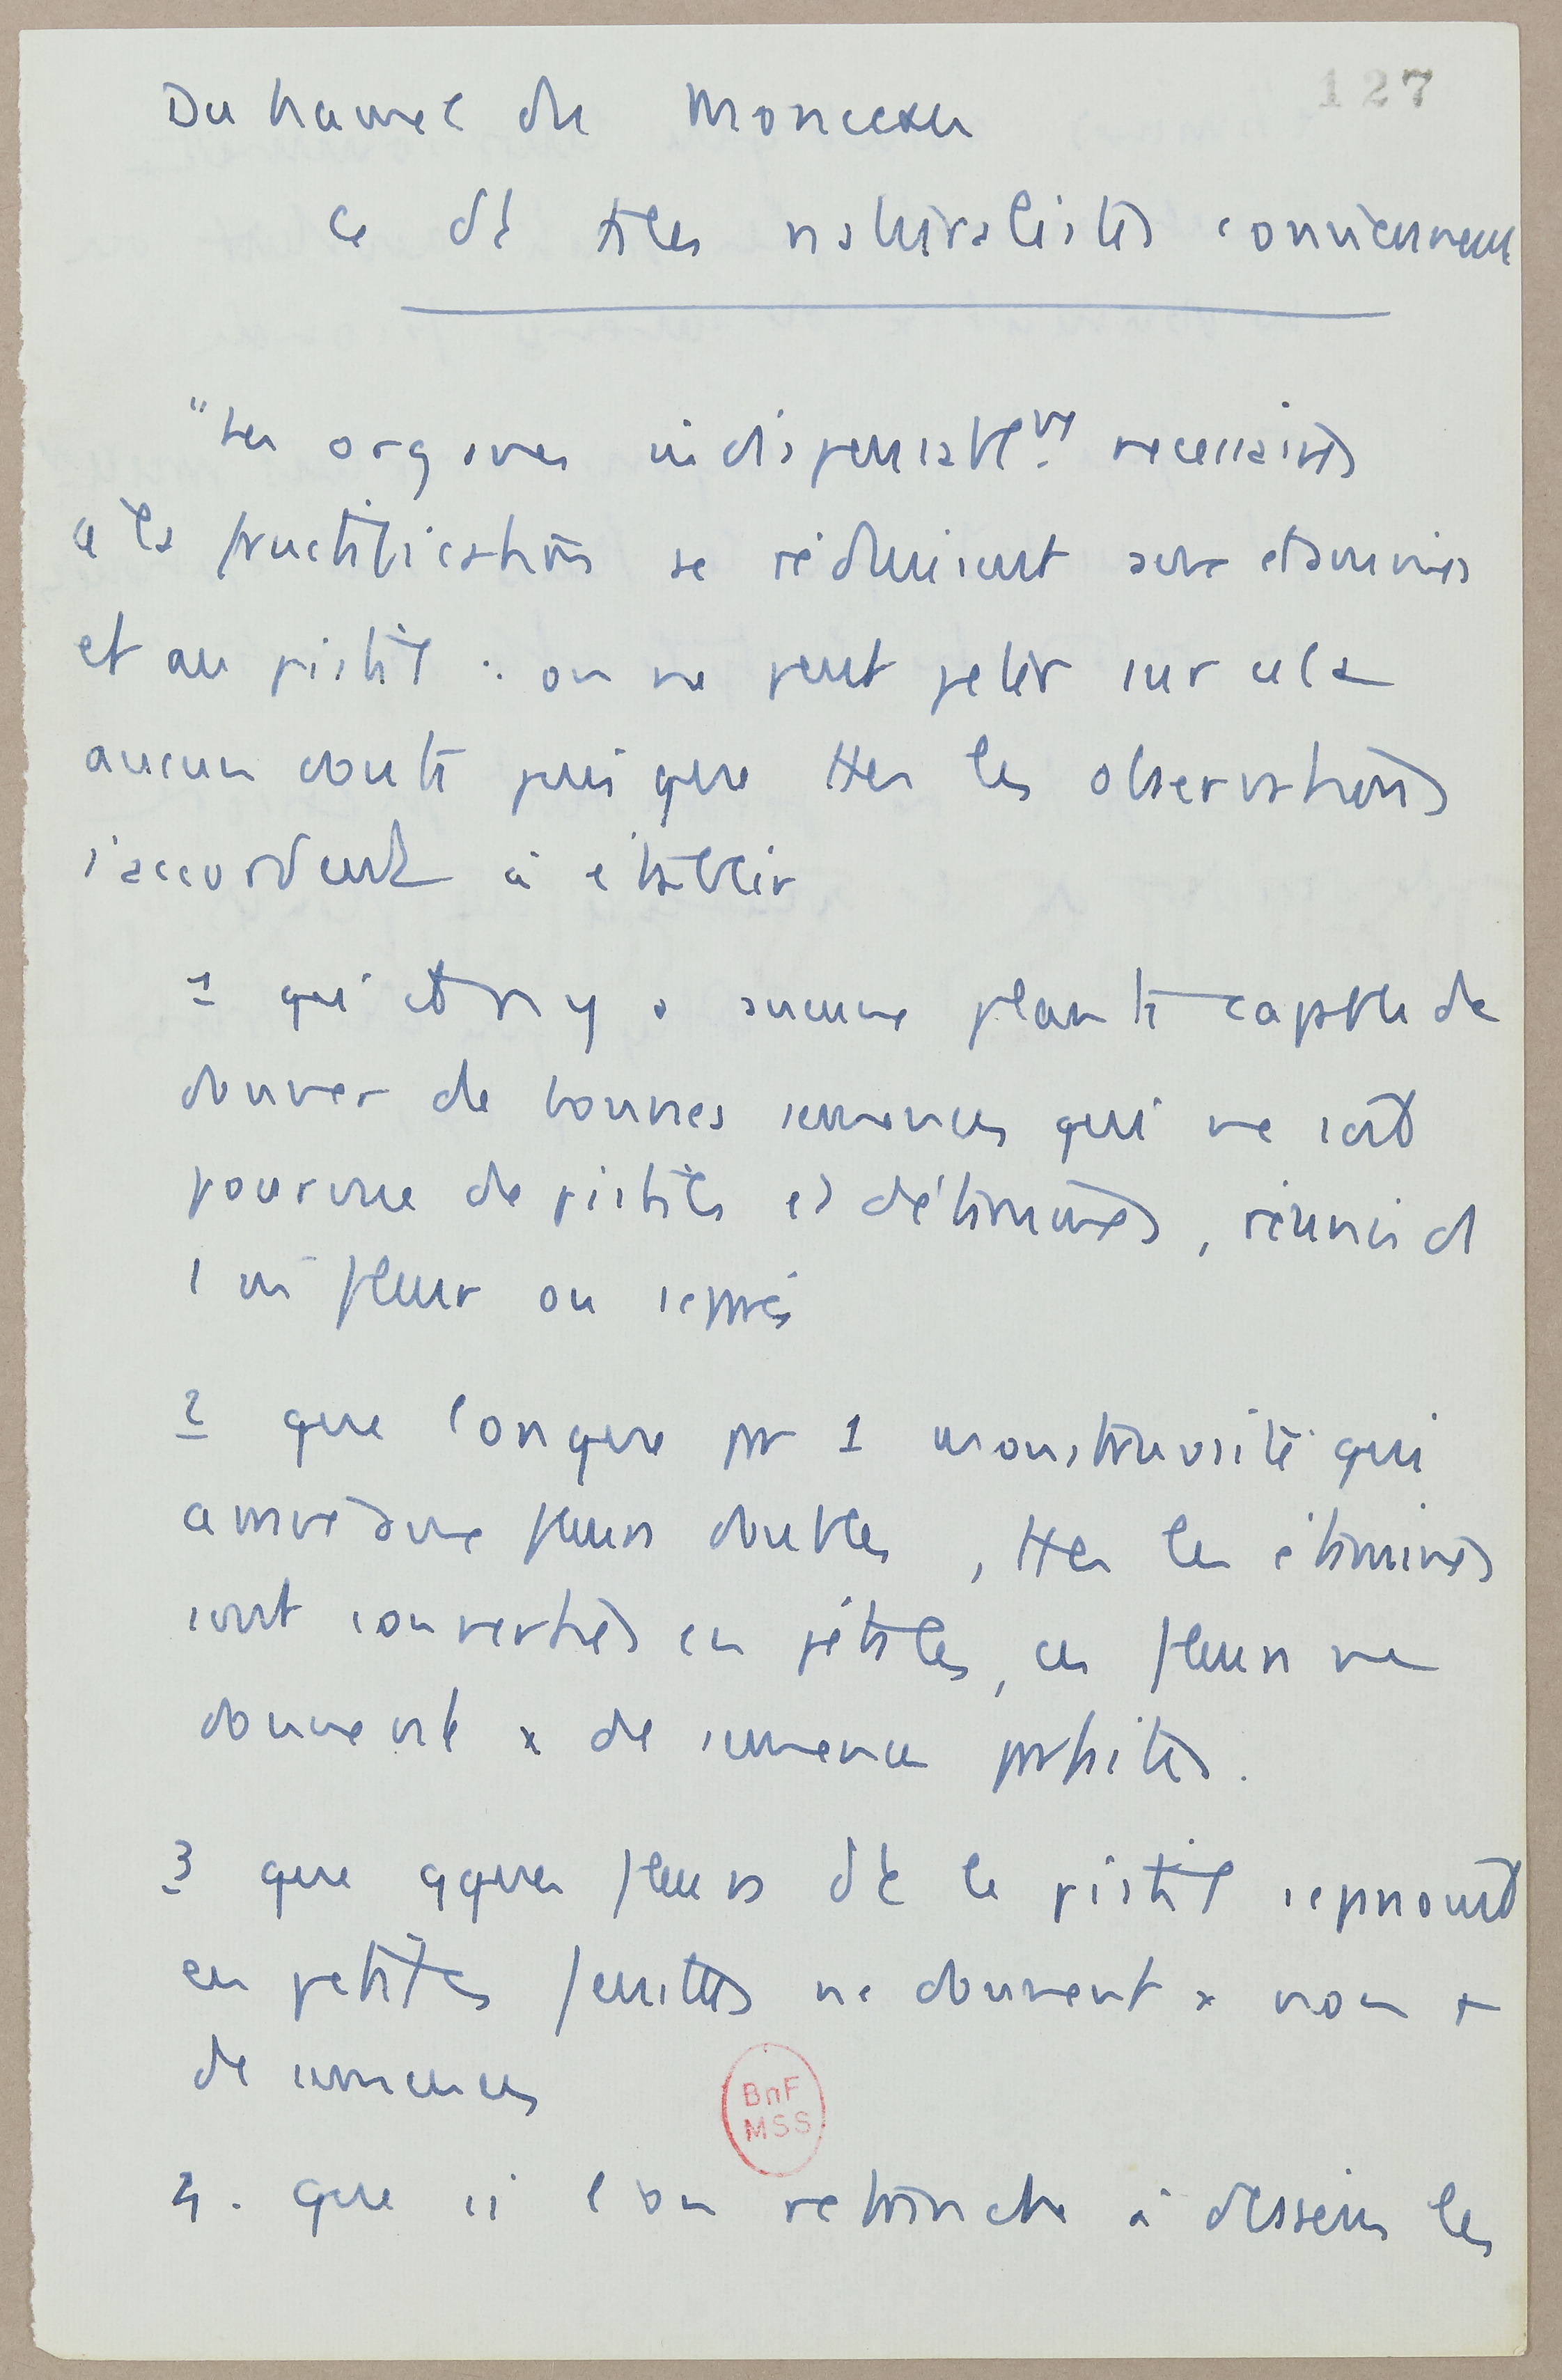 127
Duhamel du Monceau
Ce dt ts les naturalistes conviennent
"Les organes indispensablemt necessaires
à la fructification se réduisent aux etamines
et au pistil : on ne peut jeter sur cela
aucun doute puisque ttes les observations
s'accordent à établir
1 qu'il n y a aucune plante capable de
donner de bonnes semences qui ne soit
pourvue de pistils et d'étamines, réunis ds
1 m fleur ou séprés
2 que lorsque pr 1 monstruosité qui
arrive aux fleurs doubles, ttes les étamines
sont converties en pétales, ces fleurs ne
donnent x de semence prfaites.
3 que qques fleurs dt le pistil s'epanouit
en petites feuilles ne donnent x non +
de semences
BnF
MSS
4. que si l'on retranche à dessein les